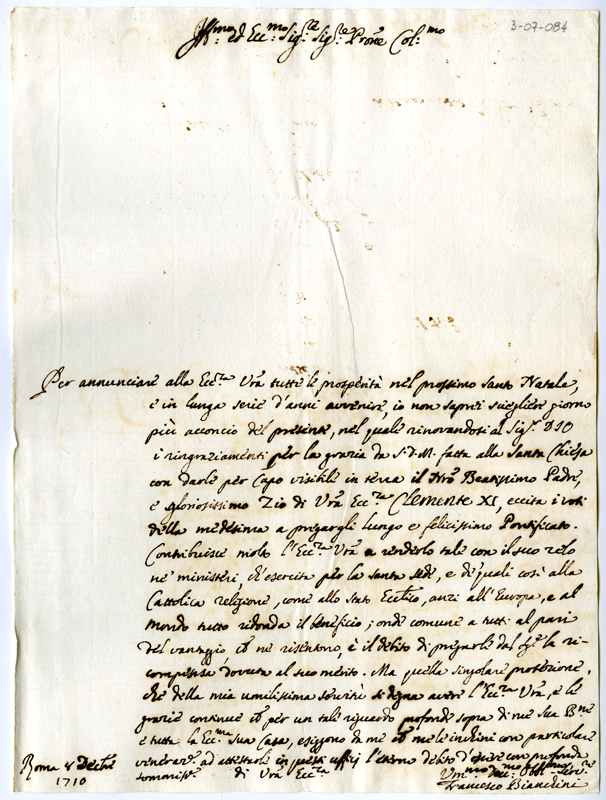 3-07-084
Ill.mo ed Ecc.mo Sig.re Sig.re Prõne Col.mo
Per annunciare alla Ecc.za Vrã tutte le prosperità nel prossimo santo Natale,
e in lunga serie d'anni avvenire, io non saprei scegliere giorno
più acconcio del presente, nel quale rinovandosi al Sig.r DIO
i ringraziamenti per la grazia da S.D.M. fatta alla Santa Chiesa
con darle per Capo visibile in terra il Nrõ Beatissimo Padre,
e gloriosissimo Zio di Vrã Ecc.za Clemente XI, eccita i voti
della medesima a pregargli lungo e felicissimo Pontificato.
Contribuisce molto l'Ecc.za Vrã a renderlo tale con il suo zelo
ne' ministeri, ch'esercita per la santa sede, e de' quali così alla
Cattolica religione, come allo Stato Eccl̃ico, anzi all'Europa, e al
Mondo tutto ridonda il beneficio; onde comune a tutti al pari
del vantaggio che ne risentono, è il debito di pregarle dal Sig.re la ri-
compensa dovuta al suo merito. Ma quella singolare protezione,
che della mia umilissima servitù si degna avere l'Ecc.za Vrã, e le
grazie continue che per un tale riguardo profonde sopra di me Sua B.ne
e tutta la Ecc.ma sua Casa, esiggono da me che me le inchini con particolare
venerazione ad attestarle in questi uffizj l'eterno debito d'essere con profonda
sommiss.e di Vrã Ecc.za
Roma 8 Decbre
1710
Um.mo Dev.mo Obl.mo Serv.re
Francesco Bianchini